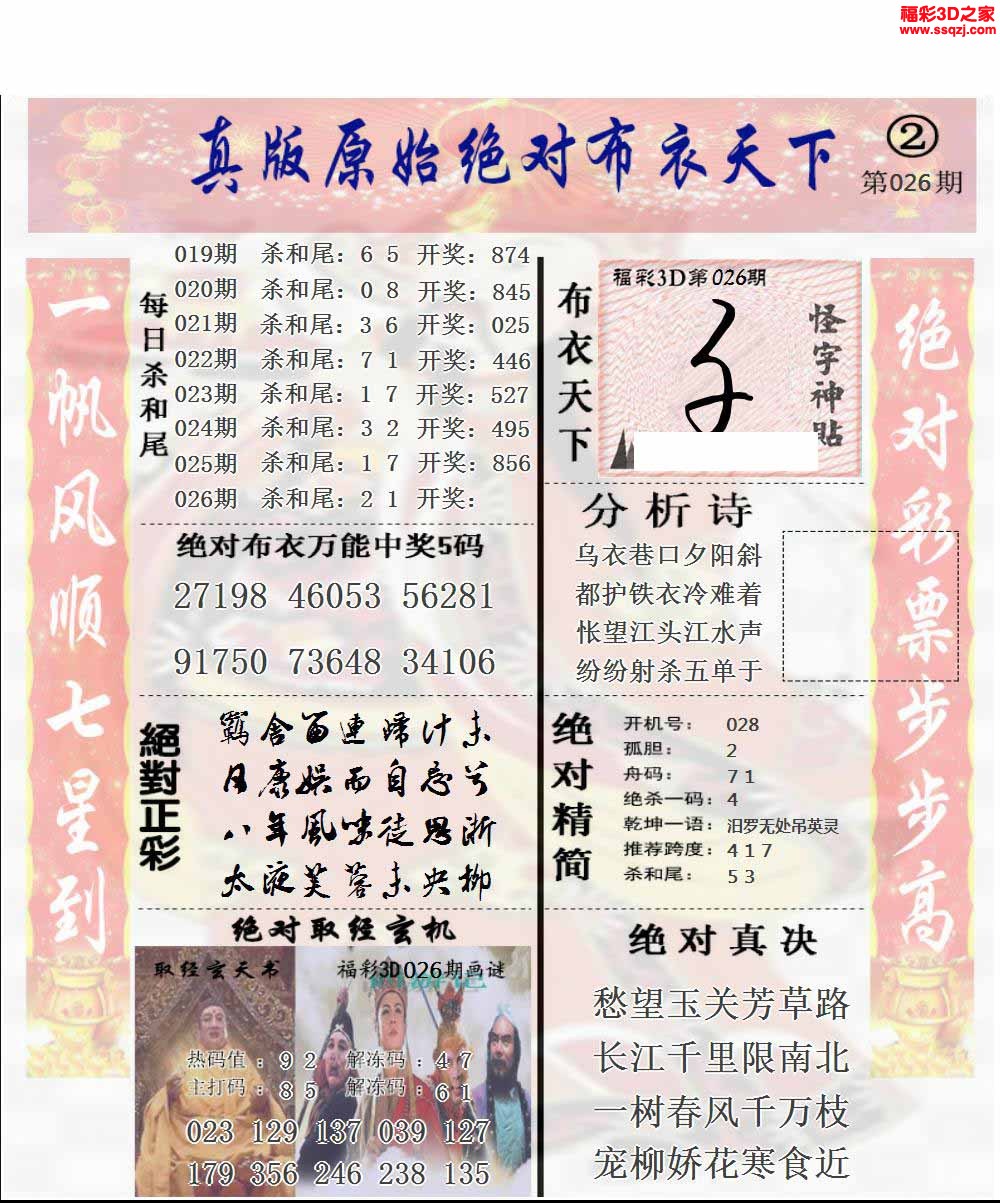 福彩3D之家
www.ssqzj.com
真版原始绝对布衣天下
②
第026期
一帆风顺七星到
绝对彩票步步高
每日杀和尾
019期 杀和尾：6 5 开奖：874
020期 杀和尾：0 8 开奖：845
021期 杀和尾：3 6 开奖：025
022期 杀和尾：7 1 开奖：446
023期 杀和尾：1 7 开奖：527
024期 杀和尾：3 2 开奖：495
025期 杀和尾：1 7 开奖：856
026期 杀和尾：2 1 开奖：
绝对布衣万能中奖5码
27198 46053 56281
91750 73648 34106
絕對正彩
羁舍留連歸计未
月廉娱而自忘兮
八年風味徒思浙
太液芙蓉未央柳
绝对取经玄机
取经玄天书
福彩3D026期画谜
热码值：9 2 解冻码：4 7
主打码：8 5 解冻码：6 1
023 129 137 039 127
179 356 246 238 135
布衣天下
福彩3D第026期
怪字神貼
分析诗
乌衣巷口夕阳斜
都护铁衣冷难着
怅望江头江水声
纷纷射杀五单于
绝对精简
开机号：028
孤胆：2
舟码：7 1
绝杀一码：4
乾坤一语：汨罗无处吊英灵
推荐跨度：4 1 7
杀和尾：5 3
绝对真决
愁望玉关芳草路
长江千里限南北
一树春风千万枝
宠柳娇花寒食近